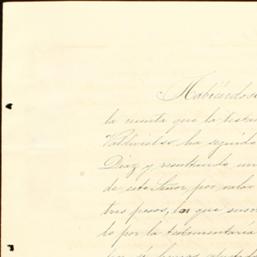 Habiéndose
la cuenta que la testa
Valdivielso ha seguido
Diaz y resultando un
de este Señor por valor
tres pesos, en que
lo por la testamentaria